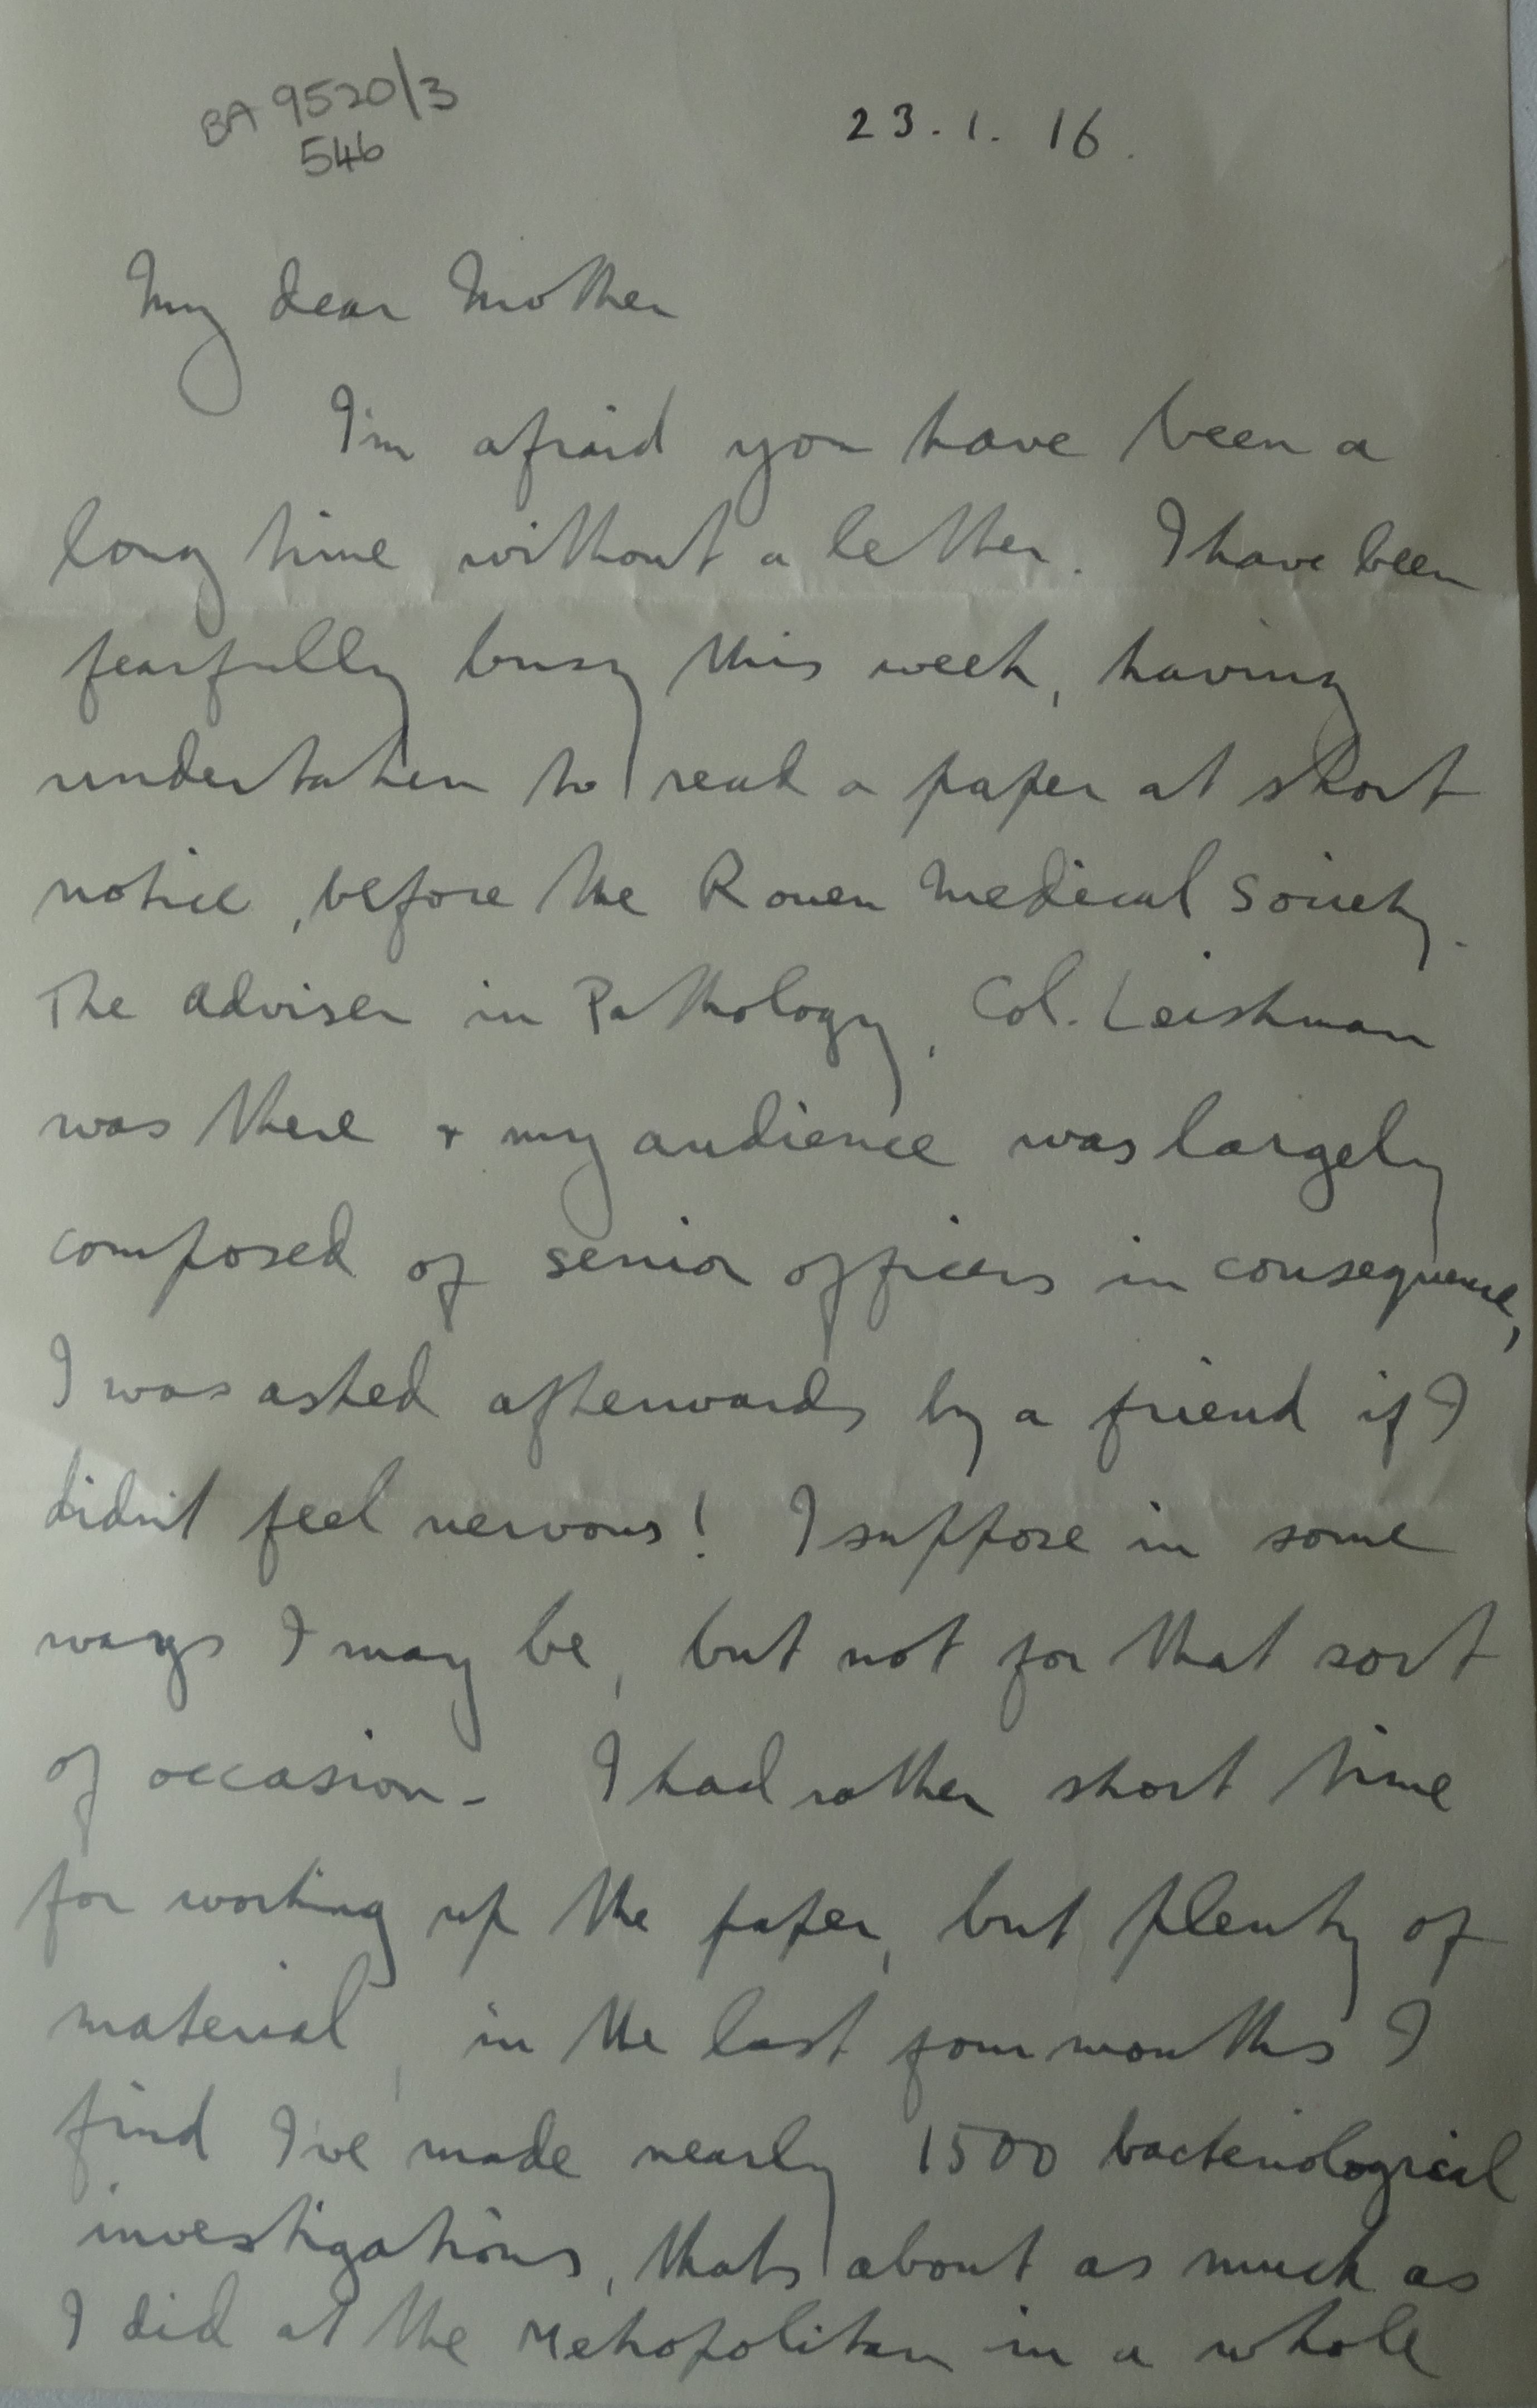 BA 9520/3
546
23.1.16.
My dear Mother
I'm afraid you have been a
long time without a letter. I have been
fearfully busy this week, having
undertaken to read a paper at short
notice, before the Rouen Medical Society.
The adviser in Pathology, Col. Leishman
was there + my audience was largely
composed of senior officers in consequence,
I was asked afterwards by a friend if I
didn't feel nervous! I suppose in some
ways I may be, but not for that sort
of occasion - I had rather short time
for working up the paper, but plenty of
material, in the last four months I
find I've made nearly 1500 bacteriological
investigations, thats about as much as
I did at the Metropolitan in a whole